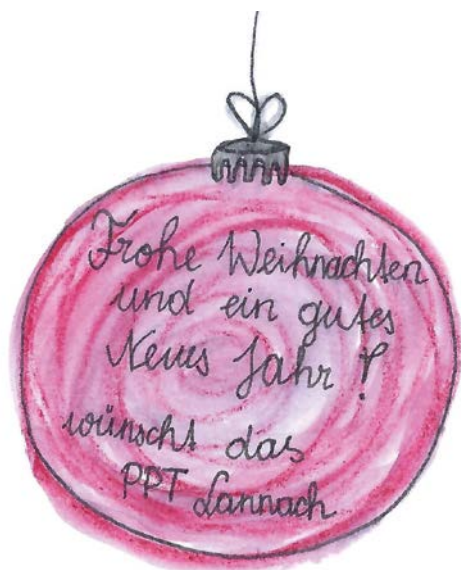 Frohe Weihnachten
und ein gutes
Neues Jahr!
wünscht das
PPT Lannach